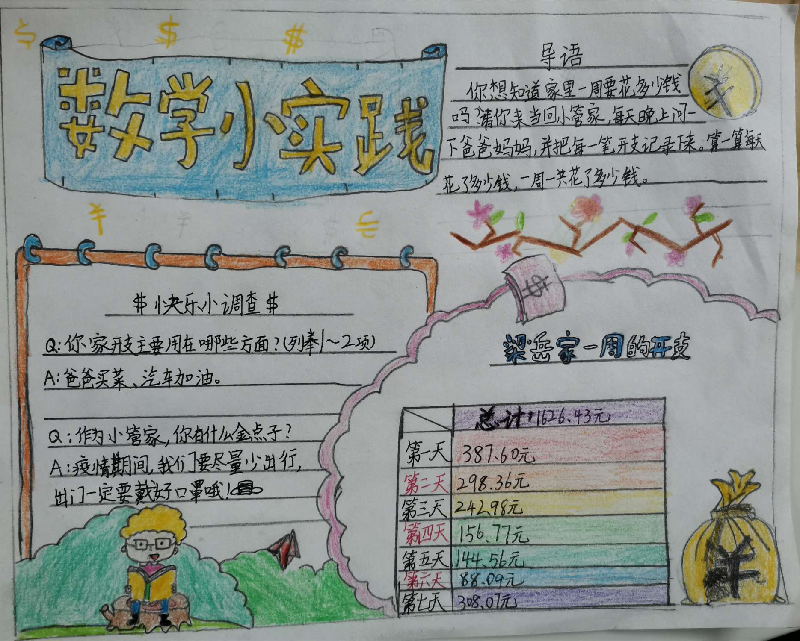 数学小实践
导语
你想知道家里一周要花多少钱
吗?请你来当回小管家,每天晚上问一
下爸爸妈妈,并把每一笔开支记录下来。算一算每天
花了多少钱,一周一共花了多少钱。
$快乐小调查$
Q:你家开支主要用在哪些方面?(列举1~2项)
A:爸爸买菜、汽车加油。
Q:作为小管家,你有什么金点子?
A:疫情期间,我们要尽量少出行,
出门一定要戴好口罩哦!
梁岳家一周的开支
总计:1626.43元
第一天 387.60元
第二天 298.36元
第三天 242.98元
第四天 156.77元
第五天 144.56元
第六天 88.09元
第七天 308.07元